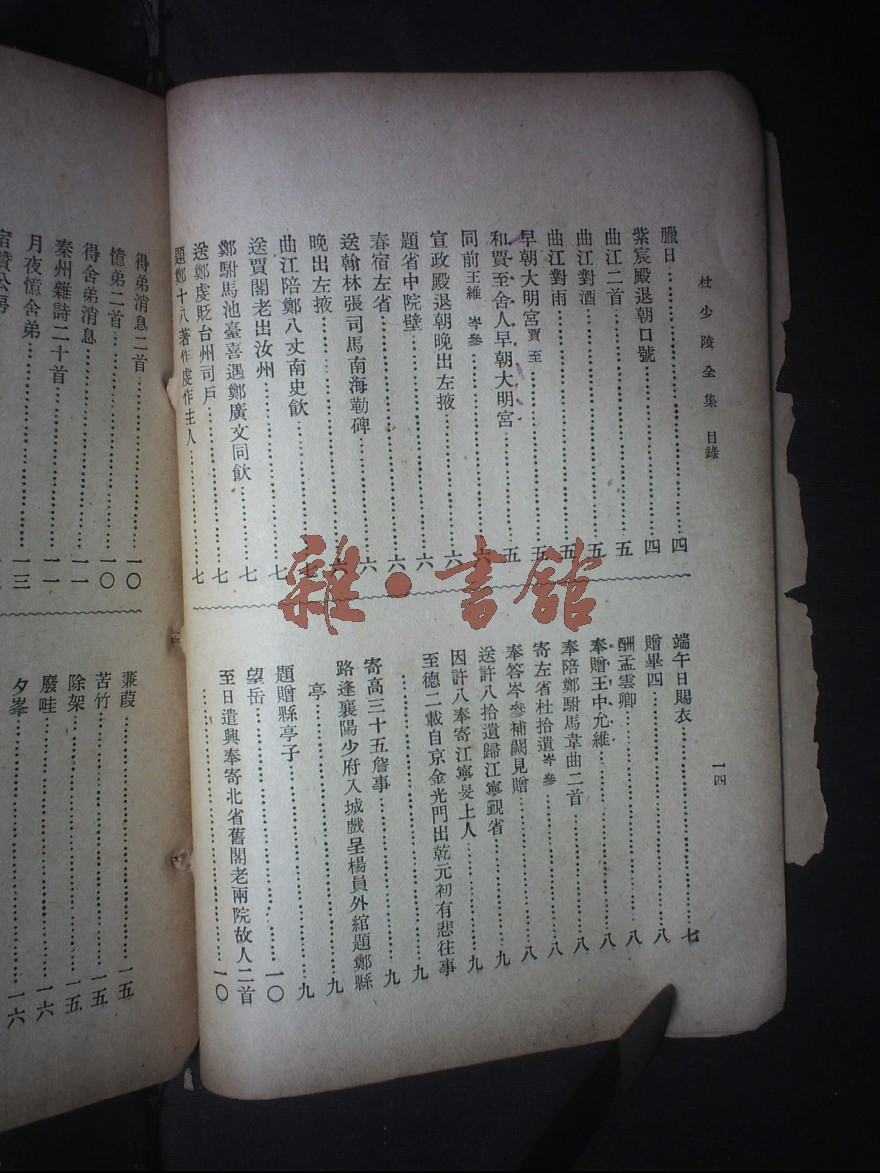 杜少陵全集 目錄
一四
臘日……四
紫宸殿退朝口號……四
曲江二首……五
曲江對酒……五
曲江對雨……五
早朝大明宮賈至……五
和賈至舍人早朝大明宮……五
同前王維 岑參……六
宣政殿退朝晚出左掖……六
題省中院壁……六
春宿左省……六
送翰林張司馬南海勒碑……六
晚出左掖……六
曲江陪鄭八丈南史飲……七
送賈閣老出汝州……七
鄭駙馬池臺喜遇鄭廣文同飲……七
送鄭虔貶台州司戶……七
題鄭十八著作虔作主人……七
端午日賜衣……七
贈畢四……八
酬孟雲卿……八
奉贈王中允維……八
奉陪鄭駙馬韋曲二首……八
寄左省杜拾遺岑參……八
奉答岑參補闕見贈……八
送許八拾遺歸江寧覲省……九
因許八奉寄江寧旻上人……九
至德二載自京金光門出乾元初有悲往事
……九
寄高三十五詹事……九
路逢襄陽少府入城戲呈楊員外綰題鄭縣
亭……九
題贈縣亭子……九
望岳……一〇
至日遣興奉寄北省舊閣老兩院故人二首
……一〇
得弟消息二首……一〇
憶弟二首……一〇
得舍弟消息……一一
秦州雜詩二十首……一一
月夜憶舍弟……一三
宿贊公房
蒹葭……一五
苦竹……一五
除架……一五
廢畦……一六
夕峯……一六
雜·書館